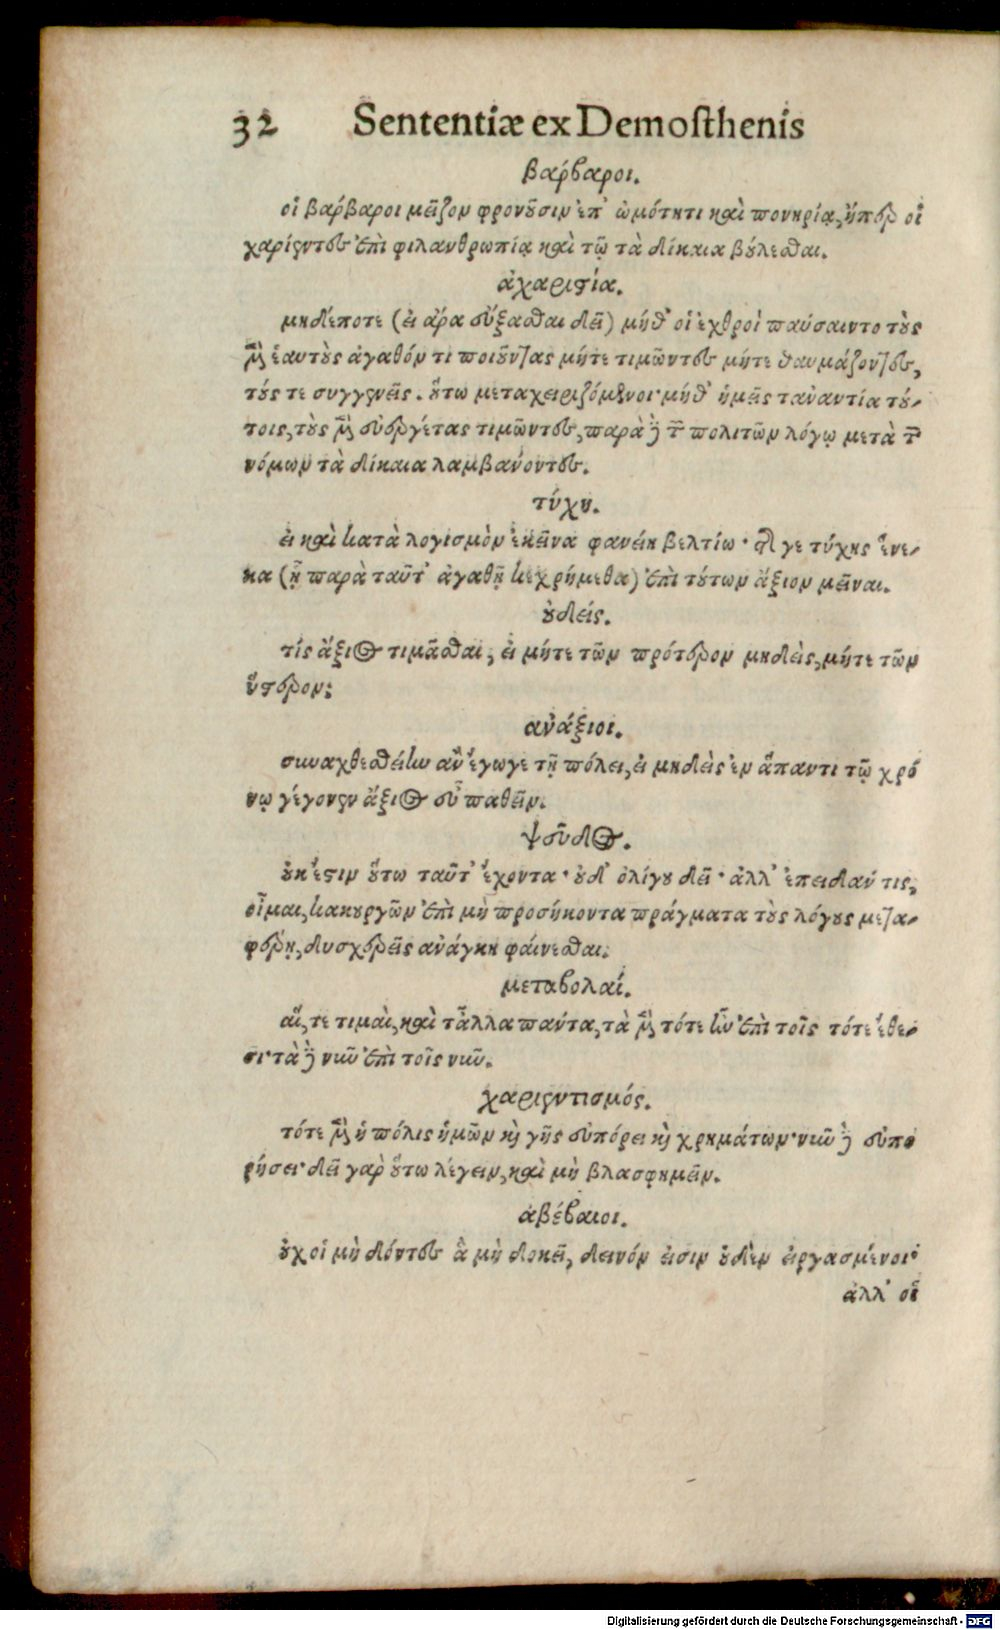 32 Sententiæ ex Demosthenis
βάρβαροι.
οἱ βάρβαροι μεῖζον φρονοῦσιν ἐπ' ὠμότητι καὶ πονηρίᾳ, ἤπερ οἱ
χαρίεντες ἐπὶ φιλανθρωπίᾳ καὶ τῷ τὰ δίκαια βούλεσθαι.
ἀχαριστία.
μηδέποτε (εἰ ἄρα εὔξασθαι δεῖ) μήθ' οἱ ἐχθροὶ παύσαιντο τοὺς
μὲν ἑαυτοὺς ἀγαθόν τι ποιοῦντας μήτε τιμῶντες μήτε θαυμάζοντες,
τούς τε συγγενεῖς. οὕτω μεταχειριζόμενοι· μήθ' ἡμεῖς ταναντία τού-
τοις, τοὺς μὲν εὐεργέτας τιμῶντες, παρὰ δὲ τῶν πολιτῶν λόγῳ μετὰ τῶν
νόμων τὰ δίκαια λαμβάνοντες.
τύχη.
εἰ καὶ κατὰ λογισμὸν ἐκεῖνα φανείη βελτίω· τῆς γε τύχης ἕνε-
κα (ᾗ παρὰ ταῦτ' ἀγαθῇ κεχρήμεθα) ἐπὶ τούτων ἄξιον μεῖναι.
οὐδείς.
τίς ἄξιος τιμᾶσθαι, εἰ μήτε τῶν πρότερον μηδεὶς, μήτε τῶν
ὕστερον;
ανάξιοι.
συναχθεσθείην ἂν ἔγωγε τῇ πόλει, εἰ μηδεὶς ἐν ἅπαντι τῷ χρό
νῳ γέγονεν ἄξιος εὖ παθεῖν.
ψεῦδος.
οὐκ ἔστιν οὕτω ταῦτ' ἔχοντα· οὐδ' ὀλίγου δεῖ· ἀλλ' ἐπειδάν τις,
οἶμαι, κακουργῶν ἐπὶ μὴ προσήκοντα πράγματα τοὺς λόγους μετα-
φέρῃ, δυσχερεῖς ανάγκη φαίνεσθαι.
μεταβολαί.
αἵ, τε τιμαὶ, καὶ τἆλλα πάντα, τὰ μὲν τότε ἦν ἐπὶ τοῖς τότε ἔθε-
σι· τὰ δὲ νῦν ἐπὶ τοῖς νῦν.
χαριεντισμός.
τότε μὲν ἡ πόλις ἡμῶν καὶ γῆς εὐπόρει καὶ χρημάτων· νῦν δὲ εὐπο
ρήσει· δεῖ γὰρ οὕτω λέγειν, καὶ μὴ βλασφημεῖν.
αβέβαιοι.
οὐχ οἱ μὴ δόντες ἃ μὴ δοκεῖ, δεινόν εἰσιν οὐδὲν εἰργασμένοι·
ἀλλ' οἱ
Digitalisierung gefördert durch die Deutsche Forschungsgemeinschaft - DFG